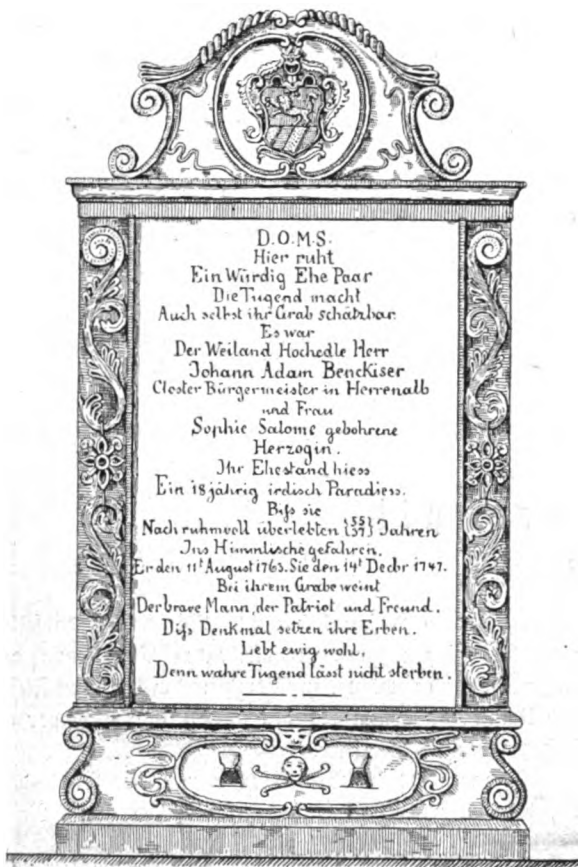 D.O.M.S.
Hier ruht
Ein Würdig Ehe Paar
Die Tugend macht
Auch selbst ihr Grab schätzbar.
Es war
Der Weiland Hochedle Herr
Johann Adam Benckiser
Closter Bürgermeister in Herrenalb
und Frau
Sophie Salome gebohrene
Herzogin.
Ihr Ehestand hiess
Ein 18jährig irdisch Paradiess.
Biſs sie
Nach ruhmvoll überlebten {55/37} Jahren
Ins Himmlische gefahren.
Er den 11t August 1763. Sie den 14t Decbr 1747.
Bei ihrem Grabe weint
Der brave Mann, der Patriot und Freund.
Diſs Denkmal setzen ihre Erben.
Lebt ewig wohl,
Denn wahre Tugend lässt nicht sterben.